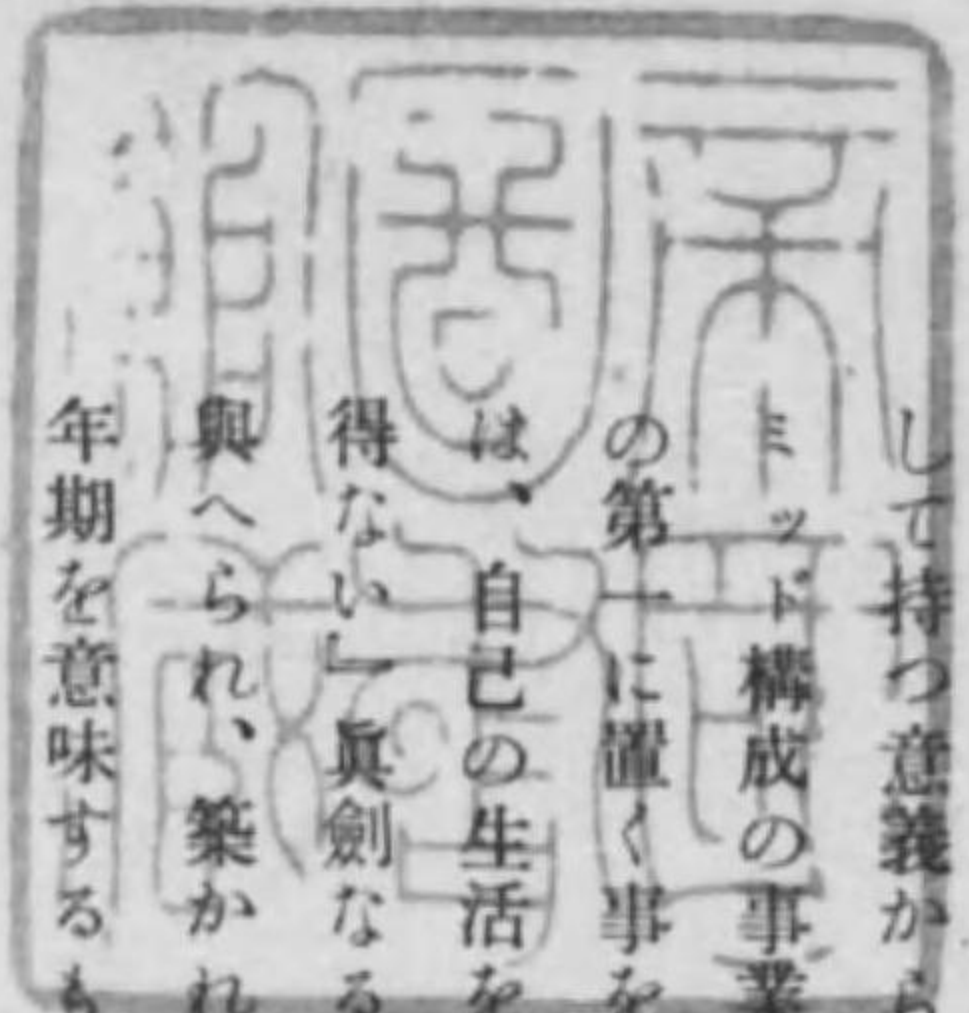 して持つ意義から
ミッド構成の事業
の第一に置く事を
は、自己の生活を
得ない」眞劍なる
與へられ、築かれ
年期を意味するも